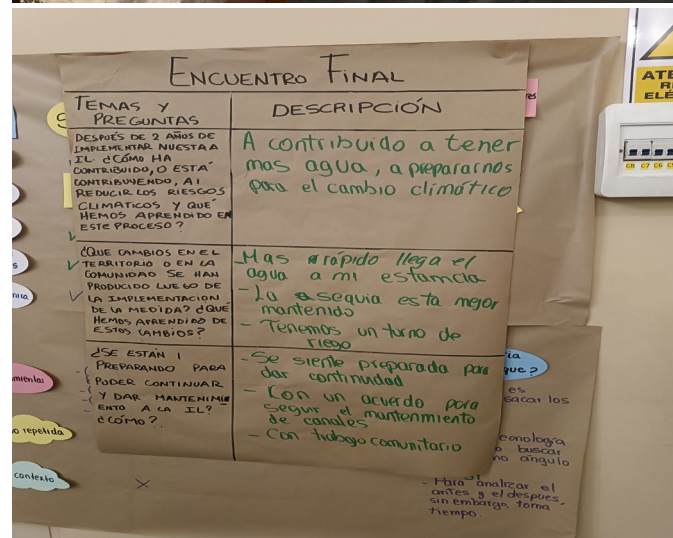 ENCUENTRO FINAL
TEMAS Y
PREGUNTAS
DESCRIPCIÓN
DESPUÉS DE 2 AÑOS DE
IMPLEMENTAR NUESTRA
IL. ¿CÓMO HA
CONTRIBUIDO, O ESTÁ
CONTRIBUYENDO, A
REDUCIR LOS RIESGOS
CLIMATICOS Y QUÉ
HEMOS APRENDIDO EN
ESTE PROCESO?
A contribuido a tener
mas agua, a prepararnos
para el cambio climático
¿QUE CAMBIOS EN EL
TERRITORIO O EN LA
COMUNIDAD SE HAN
PRODUCIDO LUEGO DE
LA IMPLEMENTACION
DE LA MEDIDA? ¿QUÉ
HEMOS APRENDIDO DE
ESTOS CAMBIOS?
- Mas rápido llega el
agua a mi estancia
- La asequia esta mejor
mantenido
- Tenemos un turno de
riego
¿SE ESTÁN
PREPARANDO PARA
PODER CONTINUAR
Y DAR MANTENIMI
ENTO A LA IL?
¿CÓMO?
- Se siente preparada para
dar continuidad
- Con un acuerdo para
seguir el mantenmiento
de canales
- Con trabajo comunitario
ATE
ELÉ
C8 C7 C6
que?
es
sacar los
buscar
angulo
- Para analizar el
antes y el despues,
sin embargo, toma
tiempo.
mientos
o repetida
contexto